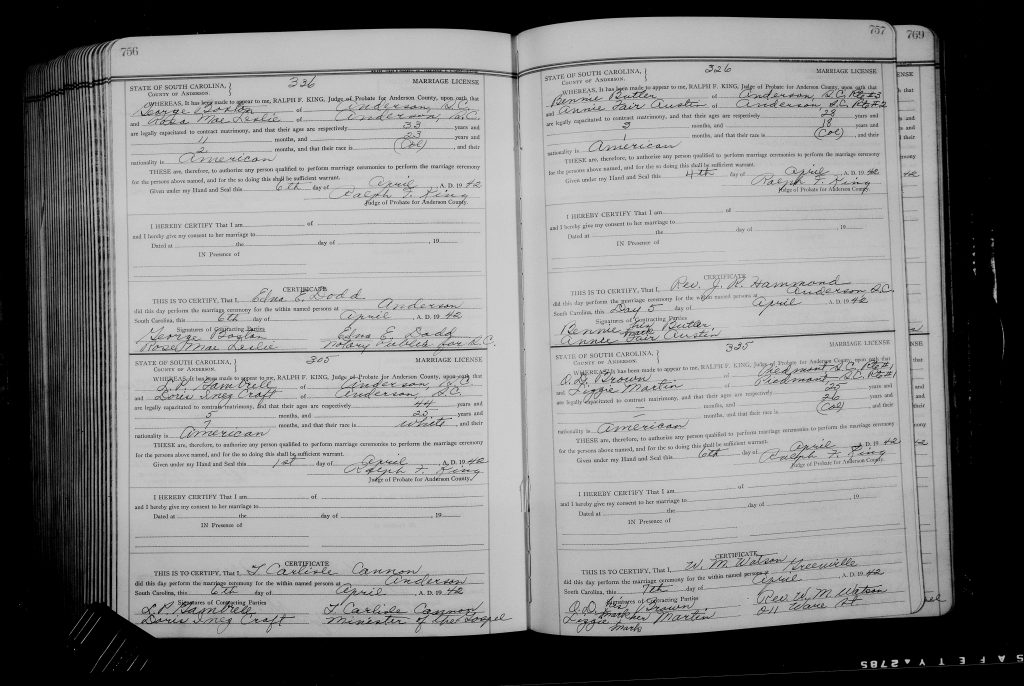 756
336
STATE OF SOUTH CAROLINA, } MARRIAGE LICENSE
COUNTY OF ANDERSON.
WHEREAS, It has been made to appear to me, RALPH F. KING, Judge of Probate for Anderson County, upon oath that
George Boston of Anderson, S.C.
and Rosa Mae Leslie of Anderson, S.C.
are legally capacitated to contract matrimony, and that their ages are respectively 33 years and
11 months, and 23 years and
2 months, and that their race is (Col) , and their
nationality is American
THESE are, therefore, to authorize any person qualified to perform marriage ceremonies to perform the marriage ceremony
for the persons above named, and for the so doing this shall be sufficient warrant.
Given under my Hand and Seal this 6th day of April A. D. 19 42
Ralph F. King
Judge of Probate for Anderson County.
I HEREBY CERTIFY That I am of
and I hereby give my consent to her marriage to
Dated at the day of , 19
IN Presence of
CERTIFICATE
THIS IS TO CERTIFY, That I, Edna E. Dodd
did this day perform the marriage ceremony for the within named persons at Anderson
South Carolina, this 6th day of April A. D. 19 42
Signatures of Contracting Parties
George Boston Edna E. Dodd
Rosa Mae Leslie Notary Public for S.C.
305
STATE OF SOUTH CAROLINA, } MARRIAGE LICENSE
COUNTY OF ANDERSON.
WHEREAS, It has been made to appear to me, RALPH F. KING, Judge of Probate for Anderson County, upon oath that
S. P. Gambrell of Anderson, S.C.
and Doris Inez Craft of Anderson, S.C.
are legally capacitated to contract matrimony, and that their ages are respectively 44 years and
5 months, and 25 years and
7 months, and that their race is White , and their
nationality is American
THESE are, therefore, to authorize any person qualified to perform marriage ceremonies to perform the marriage ceremony
for the persons above named, and for the so doing this shall be sufficient warrant.
Given under my Hand and Seal this 1st day of April A. D. 19 42
Ralph F. King
Judge of Probate for Anderson County.
I HEREBY CERTIFY That I am of
and I hereby give my consent to her marriage to
Dated at the day of , 19
IN Presence of
CERTIFICATE
THIS IS TO CERTIFY, That I, T. Carlisle Cannon
did this day perform the marriage ceremony for the within named persons at Anderson
South Carolina, this 6th day of April A. D. 19 42
Signatures of Contracting Parties
S. P. Gambrell T. Carlisle Cannon
Doris Inez Craft Minister of the Gospel
757
326
STATE OF SOUTH CAROLINA, } MARRIAGE LICENSE
COUNTY OF ANDERSON.
WHEREAS, It has been made to appear to me, RALPH F. KING, Judge of Probate for Anderson County, upon oath that
Bennie Butler of Anderson, S.C. Rt #3
and Annie Fair Austin of Anderson, S.C. Rt #2
are legally capacitated to contract matrimony, and that their ages are respectively 23 years and
3 months, and 18 years and
1 months, and that their race is (Col) , and their
nationality is American
THESE are, therefore, to authorize any person qualified to perform marriage ceremonies to perform the marriage ceremony
for the persons above named, and for the so doing this shall be sufficient warrant.
Given under my Hand and Seal this 4th day of April A. D. 19 42
Ralph F. King
Judge of Probate for Anderson County.
I HEREBY CERTIFY That I am of
and I hereby give my consent to her marriage to
Dated at the day of , 19
IN Presence of
CERTIFICATE
THIS IS TO CERTIFY, That I, Rev. J. R. Hammond
did this day perform the marriage ceremony for the within named persons at Anderson S.C.
South Carolina, this Day 5 day of April A. D. 19 42
Signatures of Contracting Parties
Bennie his mark Butler
Annie Fair Austin
325
STATE OF SOUTH CAROLINA, } MARRIAGE LICENSE
COUNTY OF ANDERSON.
WHEREAS, It has been made to appear to me, RALPH F. KING, Judge of Probate for Anderson County, upon oath that
O. D. Brown of Piedmont, S.C. Rt #1
and Lizzie Martin of Piedmont, S.C. Rt #1
are legally capacitated to contract matrimony, and that their ages are respectively 25 years and
— months, and 26 years and
— months, and that their race is (Col) , and their
nationality is American
THESE are, therefore, to authorize any person qualified to perform marriage ceremonies to perform the marriage ceremony
for the persons above named, and for the so doing this shall be sufficient warrant.
Given under my Hand and Seal this 6th day of April A. D. 19 42
Ralph F. King
Judge of Probate for Anderson County.
I HEREBY CERTIFY That I am of
and I hereby give my consent to her marriage to
Dated at the day of , 19
IN Presence of
CERTIFICATE
THIS IS TO CERTIFY, That I, W. M. Watson
did this day perform the marriage ceremony for the within named persons at Greenville
South Carolina, this 7th day of April A. D. 19 42
Signatures of Contracting Parties
O. D. his mark Brown Rev W. M. Watson
Lizzie her mark Martin 011 Ware St
769
SAFETY 2785